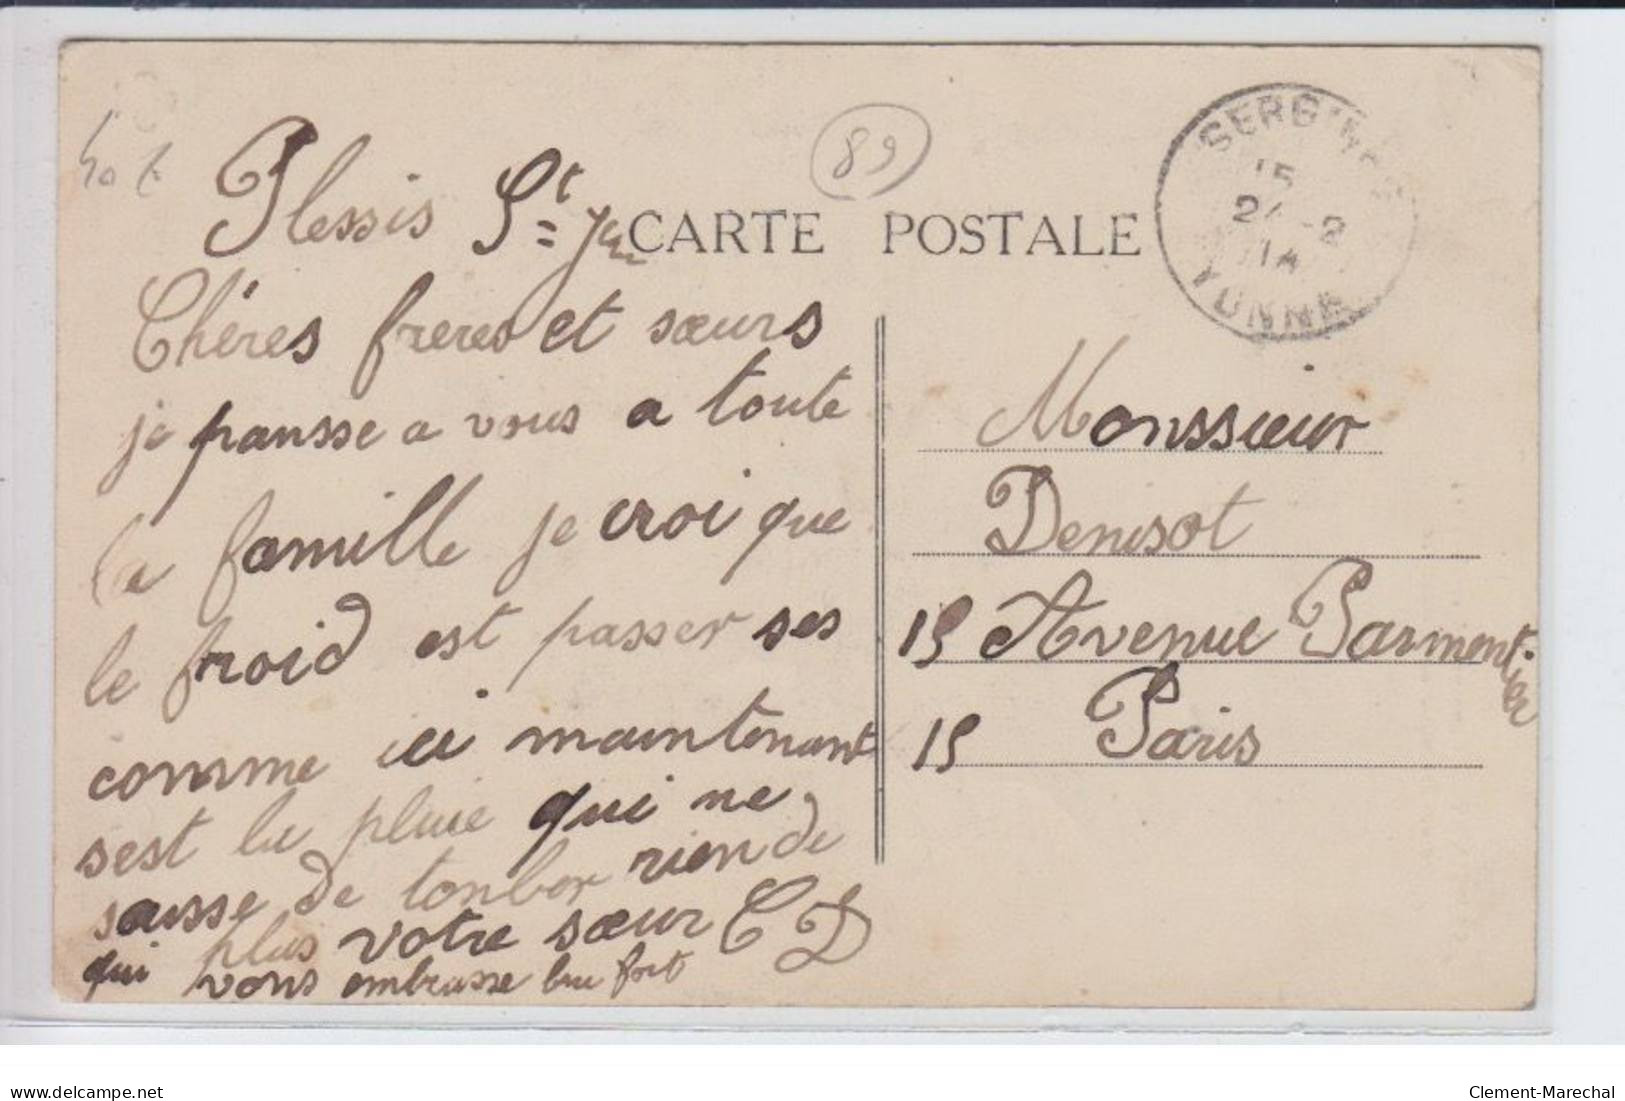 89
Plessis St Jean
CARTE POSTALE
SERGINES
15
24 -2
14
YONNE
Chéres freres et sœurs
je pansse a vous a toute
la famille je croi que
le froid est passer ses
comme ici maintenant
sest la pluie qui ne
sausse de tonber rien de
plus votre sœur C D
qui vous embrasse bien fort
Monssieur
Denisot
15 Avenue Parmentier
15 Paris
www.delcampe.net
Clement-Marechal